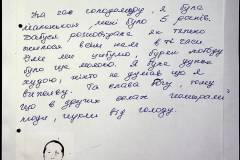 На час голодомору, я була
маленькою, мені було 5 років.
Бабуся розповідала як тяжко
жилося всім нам в ті часи.
Їли ми цибулю, буряк, лободу
було ще молоко. Я була дуже
худою, ніхто не думав що я
виживу. Та слава Богу, тому
що в других селах помирали
люди, пухли від голоду.